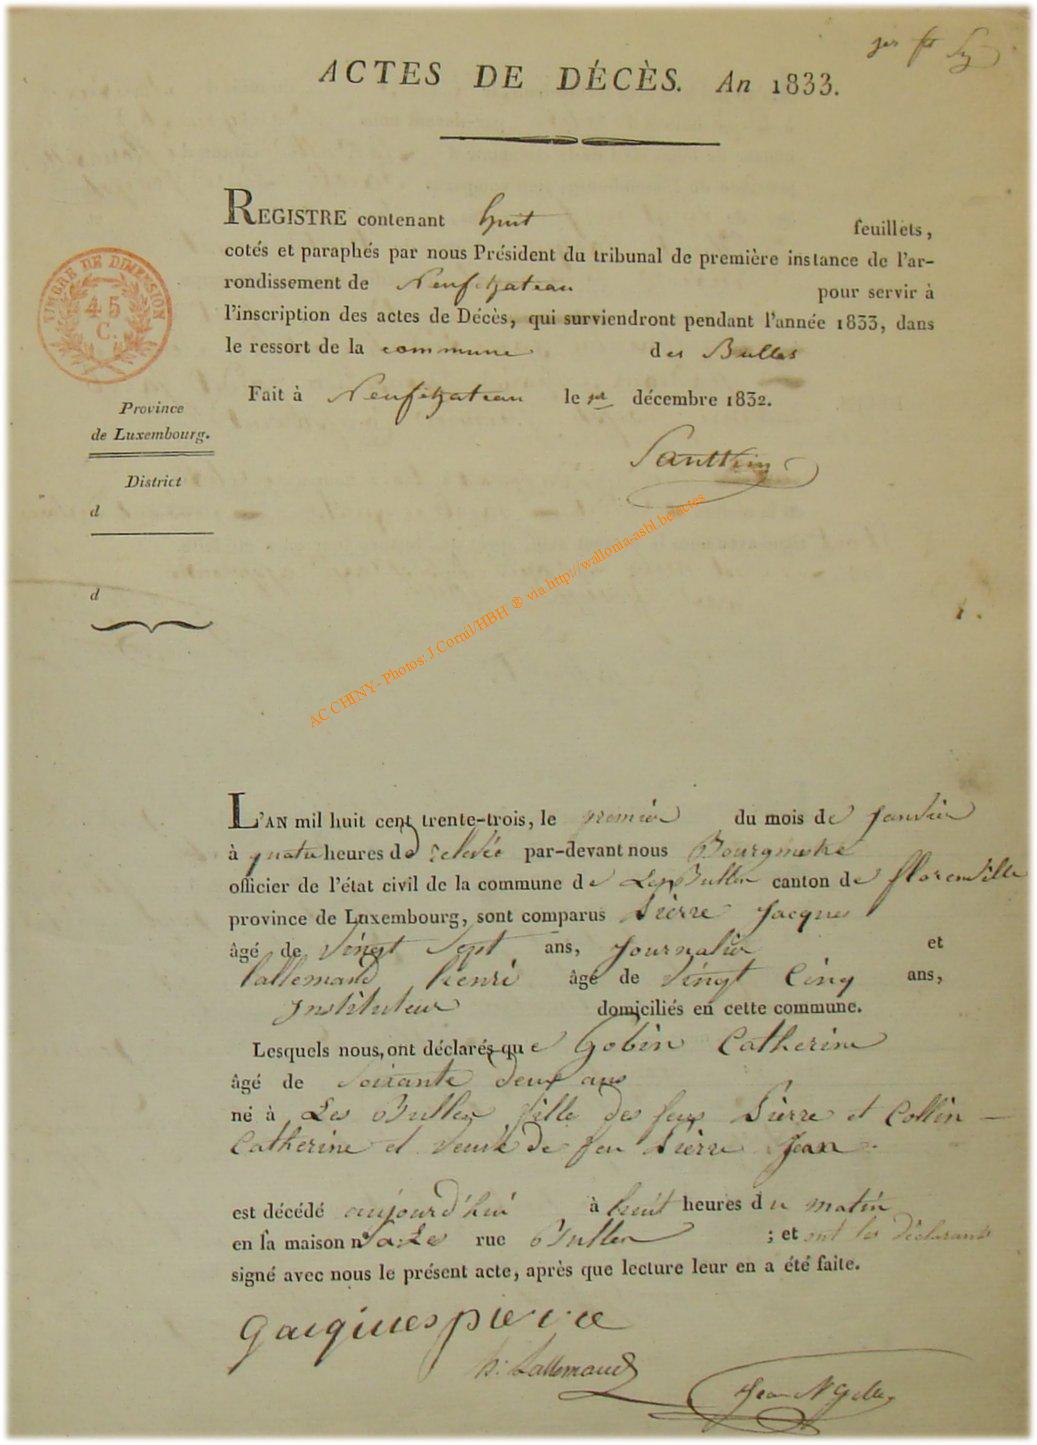 ACTES DE DÉCÈS. An 1833.
REGISTRE contenant huit feuillets,
cotés et paraphés par nous Président du tribunal de première instance de l'ar-
rondissement de Neufchateau pour servir à
l'inscription des actes de Décès, qui surviendront pendant l'année 1833, dans
le ressort de la commune des Bulles
Fait à Neufchateau le 1er décembre 1832.
TIMBRE DE DIMENSION
45
C.
Province
de Luxembourg.
District
d
d
1.
AC CHINY - Photos: J Cornil/HBH ® via http://wallonia-asbl.be/actes
L'AN mil huit cent trente-trois, le premier du mois de Janvier
à quatre heures de relevée par-devant nous Bourgmestre
officier de l'état civil de la commune de Les Bulles canton de florenville
province de Luxembourg, sont comparus Pierre Jacques
âgé de vingt Sept ans, Journalier et
lallemand henri âgé de vingt Cinq ans,
Instituteur domiciliés en cette commune.
Lesquels nous, ont déclarés que Gobin Catherine
âgé de Soixante deux ans
né à Les Bulles fille des feus Pierre et Collin
Catherine et veuve de feu Pierre Jean
est décédé aujourd'hui à huit heures du matin
en la maison n° a Les rue Bulles ; et ont les déclarants
signé avec nous le présent acte, après que lecture leur en a été faite.
Gacques pierre
h. Lallemand